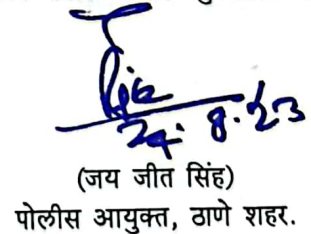 24.8.23
(जय जीत सिंह)
पोलीस आयुक्त, ठाणे शहर.